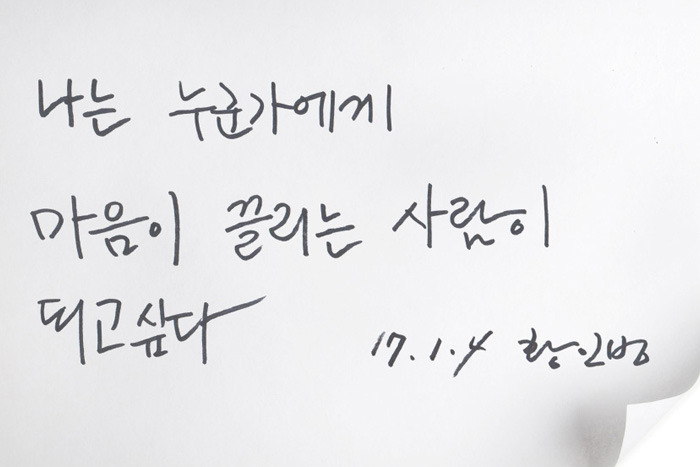 나는 누군가에게
마음이 끌리는 사람이
되고싶다
17.1.4 황인범